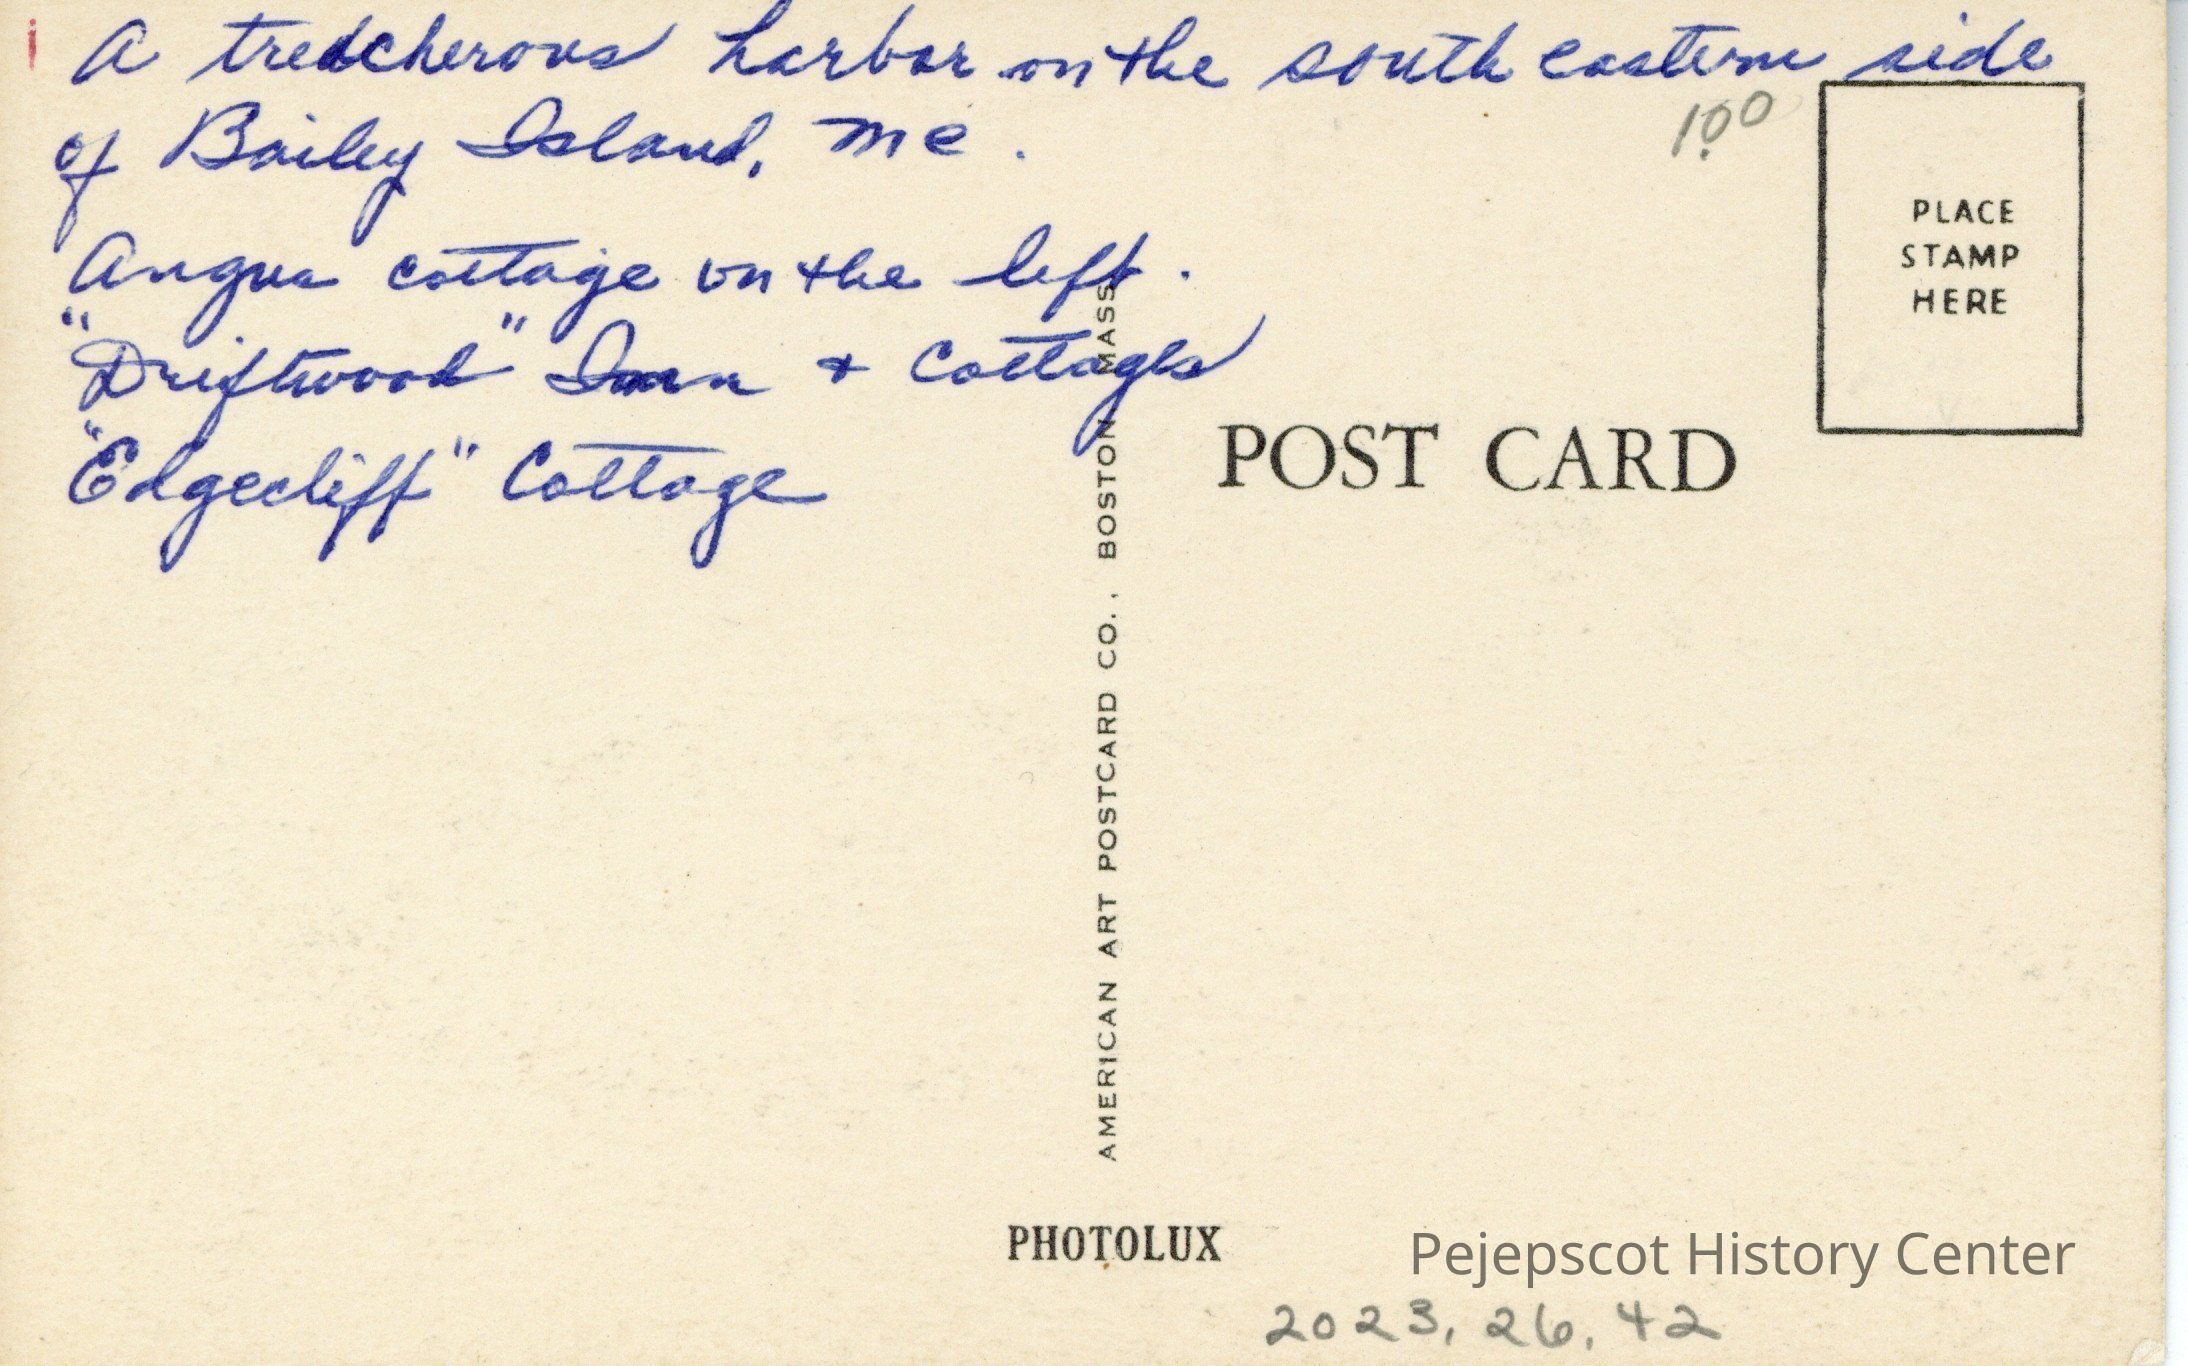 A treacherous harbor on the south eastern side
of Bailey Island, Me.
Angus cottage on the left.
"Driftwood" Inn & Cottages
"Edgecliff" Cottage
1.00
PLACE
STAMP
HERE
POST CARD
AMERICAN ART POSTCARD CO., BOSTON, MASS.
PHOTOLUX
Pejepscot History Center
2023.26.42